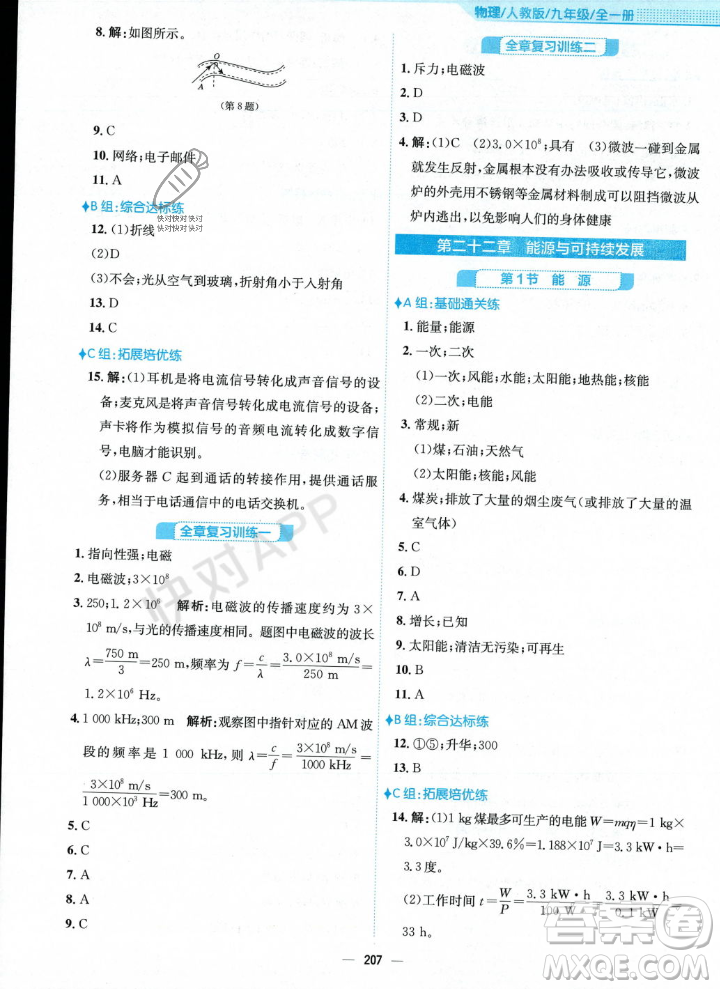 物理/人教版/九年级/全一册
8. 解:如图所示。
O
A
(第8题)
9. C
10. 网络;电子邮件
11. A
快对快对快对
快对快对快对
B组:综合达标练
12. (1)折线
(2)D
(3)不会;光从空气到玻璃,折射角小于入射角
13. D
14. C
C组:拓展培优练
15. 解:(1)耳机是将电流信号转化成声音信号的设
备;麦克风是将声音信号转化成电流信号的设备;
声卡将作为模拟信号的音频电流转化成数字信
号,电脑才能识别。
(2)服务器C起到通话的转接作用,提供通话服
务,相当于电话通信中的电话交换机。
全章复习训练一
1. 指向性强;电磁
2. 电磁波;3×10⁸
3. 250;1.2×10⁶ 解析:电磁波的传播速度约为3×
10⁸ m/s,与光的传播速度相同。题图中电磁波的波长
λ=750 m/3=250 m,频率为f=c/λ=3.0×10⁸ m/s/250 m=
1.2×10⁶ Hz。
4. 1 000 kHz;300 m 解析:观察图中指针对应的AM波
段的频率是1 000 kHz,则λ=c/f=3×10⁸ m/s/1000 kHz=
3×10⁸ m/s/1 000×10³ Hz=300 m。
5. C
6. C
7. A
8. A
9. C
全章复习训练二
1. 斥力;电磁波
2. D
3. D
4. 解:(1)C (2)3.0×10⁸;具有 (3)微波一碰到金属
就发生反射,金属根本没有办法吸收或传导它,微波
炉的外壳用不锈钢等金属材料制成可以阻挡微波从
炉内逃出,以免影响人们的身体健康
第二十二章 能源与可持续发展
第1节 能 源
A组:基础通关练
1. 能量;能源
2. 一次;二次
(1)一次:风能;水能;太阳能;地热能;核能
(2)二次:电能
3. 常规;新
(1)煤;石油;天然气
(2)太阳能;核能
4. 煤炭;排放了大量的烟尘废气(或排放了大量的温
室气体)
5. C
6. D
7. C
8. 增长;已知
9. 太阳能;清洁无污染;可再生
10. B
11. A
B组:综合达标练
12. ①⑤;升华;300
13. B
C组:拓展培优练
14. 解:(1)1 kg煤最多可生产的电能W=mqη=1 kg×
3.0×10⁷ J/kg×39.6%=1.188×10⁷ J=3.3 kW·h=
3.3度。
(2)工作时间t=W/P=3.3 kW·h/100 W=3.3 kW·h/0.1 kW=
33 h。
快对APP
207
答案圈
MXQE.COM